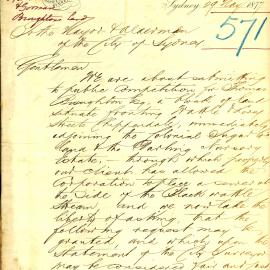 & Gorman
Broughton Esq
Sydney 29 May 1877
571
To the Mayor & Aldermen
of the City of Sydney
Gentlemen
We are about submitting
to public Competition for Thomas
Broughton Esq, a block of land
situate fronting Wattle
Streets Chippendale, immediately
adjoining the Colonial Sugar Co's
land & the Darling Nursery
Estate, through which property
our Client has allowed the
Corporation to place a sewer at
the side of the Blackwattle
Stream, and we now take the
liberty of asking, that the
following request may be
granted, and which upon the
Statement of the City Surveyor
may be considered fair and just